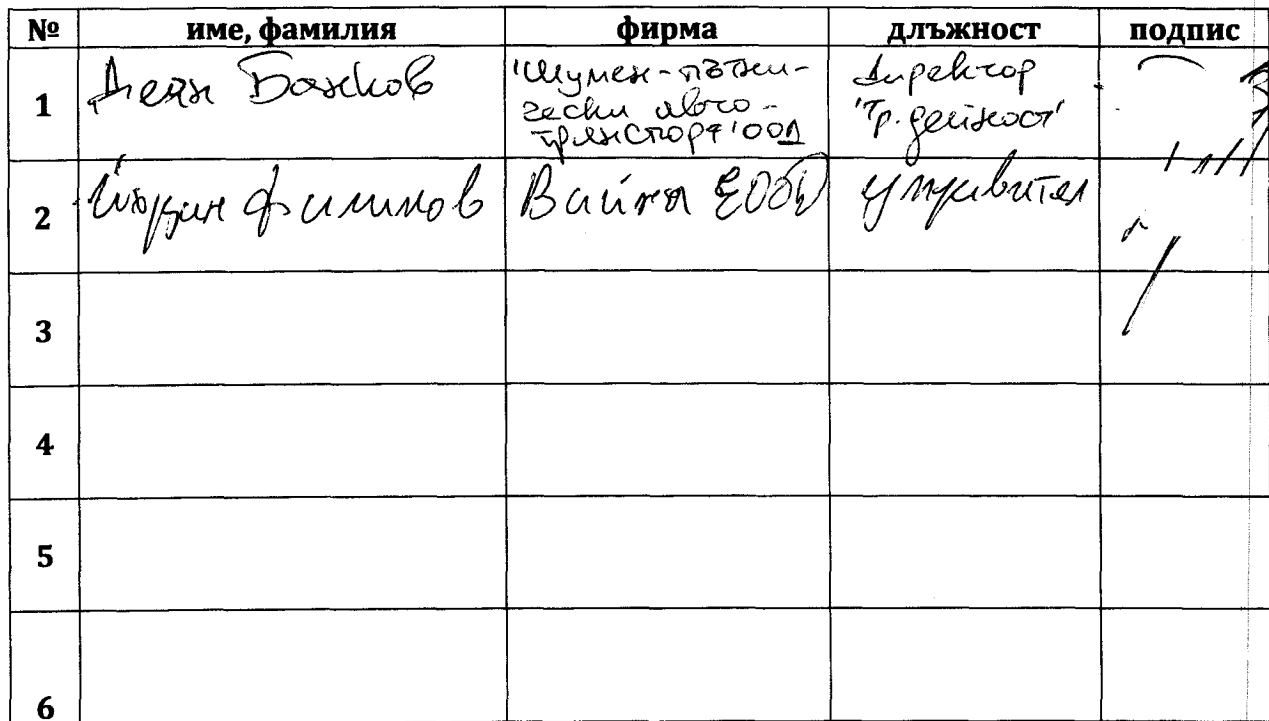 № име, фамилия фирма длъжност подпис
1 Деян Божков "Шумен-пътни-
чески авто-
транспорт" ООД Директор
"Тр. дейност"
2 Филипов ЕООД управител
3
4
5
6